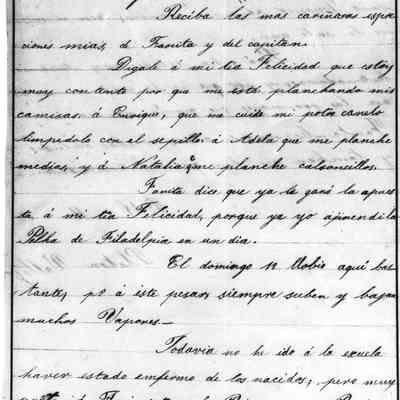 Reciba las mas cariñosas espre
ciones mias, d Fanita y del capitan.
Digale á mi tia Felicidad que estoy
muy contento por que me está planchando mis
camisas. á Enrique, que me cuide mi potro canelo
limpiedolo con el sepillo. á Adela que me planche
medias, y á Natalia que me planche calsonsillos.
Fanita dice que ya le gané la apues
ta, á mi tia Felicidad, porque ya yo aprendi la
Polka de Filadelpia en un dia.
El domingo 12 llobio aquí bas
tante, pº á éste pesar, siempre suben y bajan
muchos Vapores.—
Todavia no he ido á la escuela
haver estado emfermo de los nacidos; pero muy